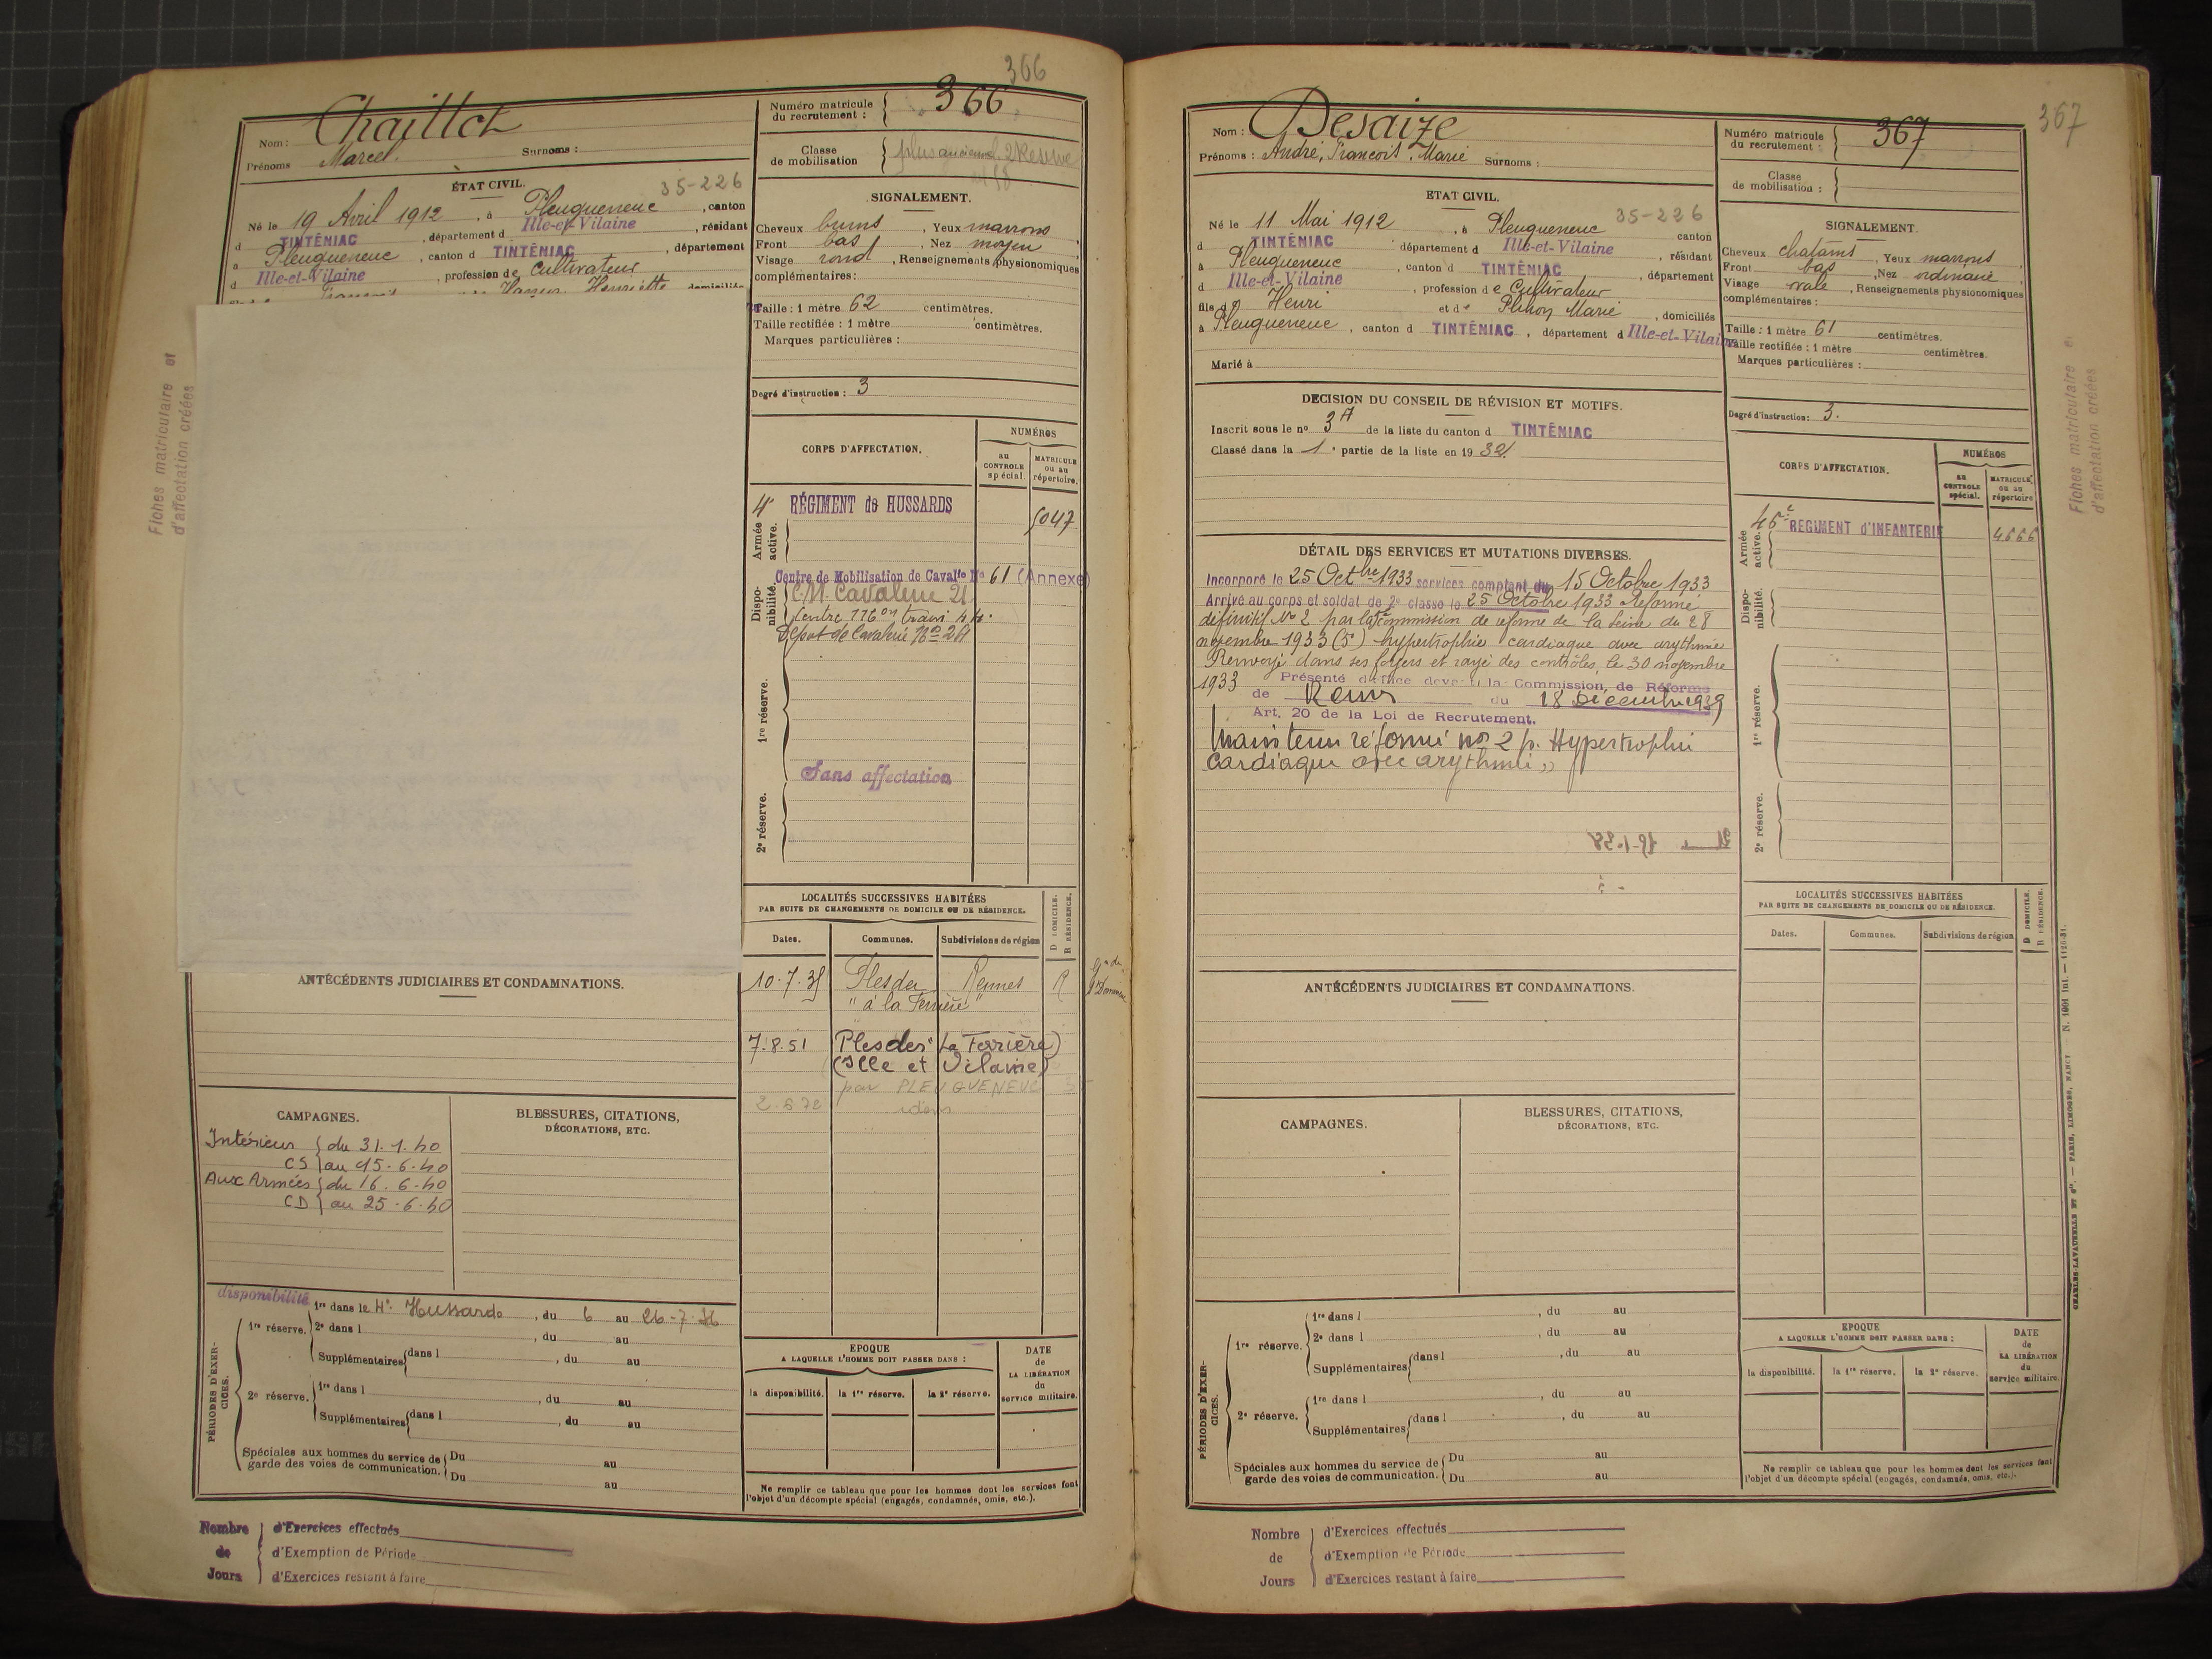 366
Nom : Chaillot
Prénoms Marcel. Surnoms :
Numéro matricule du recrutement : 366
Classe de mobilisation
ÉTAT CIVIL.
35-226
Né le 19 Avril 1912, à Pleugueneuc, canton
d TINTÉNIAC, département d Ille-et-Vilaine, résidant
à Pleugueneuc, canton d TINTÉNIAC, département
d Ille-et-Vilaine, profession de Cultivateur
Henriette domiciliés
SIGNALEMENT.
Cheveux bruns, Yeux marrons
Front bas, Nez moyen
Visage rond, Renseignements physionomiques
complémentaires :
Taille : 1 mètre 62 centimètres.
Taille rectifiée : 1 mètre centimètres.
Marques particulières :
Degré d'instruction : 3
Fiches matriculaire et
d'affectation créées
CORPS D'AFFECTATION.
NUMÉROS
au CONTROLE spécial.
MATRICULE ou au répertoire.
Armée active.
4e RÉGIMENT de HUSSARDS 5047
Disponibilité.
Centre de Mobilisation de Cavalie No 61 (Annexe)
CM. Cavalerie 21
Centre 116 on train
Dépot de Cavalerie No
1re réserve.
Sans affectation
2e réserve.
LOCALITÉS SUCCESSIVES HABITÉES
PAR SUITE DE CHANGEMENTS DE DOMICILE OU DE RÉSIDENCE.
D DOMICILE.
R RÉSIDENCE.
Dates. Communes. Subdivisions de région
10.7.35 Plesder Rennes R
"à la Ferrière"
7.8.51 Plesder (La Ferrière)
(Ille et Vilaine)
par PLEUGUENEUC
2.6.72 idem
ANTÉCÉDENTS JUDICIAIRES ET CONDAMNATIONS.
CAMPAGNES.
Intérieur du 31.1.40
CS au 15-6-40
Aux Armées du 16.6-40
CD au 25-6-40
BLESSURES, CITATIONS,
DÉCORATIONS, ETC.
disponibilité
PÉRIODES D'EXERCICES.
1re réserve.
1re dans le 4e Hussards, du 6 au 26-7-36
2e dans l , du au
Supplémentaires dans l , du au
2e réserve.
1re dans l , du au
Supplémentaires dans l , du au
Spéciales aux hommes du service de garde des voies de communication.
Du au
Du au
EPOQUE
A LAQUELLE L'HOMME DOIT PASSER DANS :
la disponibilité. la 1re réserve. la 2e réserve.
DATE de LA LIBÉRATION du service militaire.
Ne remplir ce tableau que pour les hommes dont les services font
l'objet d'un décompte spécial (engagés, condamnés, omis, etc.).
Nombre de Jours
d'Exercices effectués
d'Exemption de Période
d'Exercices restant à faire
367
Nom : Desaize
Prénoms : André, François, Marie Surnoms :
Numéro matricule du recrutement : 367
Classe de mobilisation :
ETAT CIVIL.
35-226
Né le 11 Mai 1912, à Pleugueneuc canton
d TINTÉNIAC département d Ille-et-Vilaine, résidant
à Pleugueneuc, canton d TINTÉNIAC, département
d Ille-et-Vilaine, profession de Cultivateur
fils d Henri et de Plihon Marie, domiciliés
à Pleugueneuc, canton d TINTÉNIAC, département d Ille-et-Vilaine
Marié à
SIGNALEMENT.
Cheveux chatains, Yeux marrons
Front bas, Nez ordinaire
Visage ovale, Renseignements physionomiques
complémentaires :
Taille : 1 mètre 61 centimètres.
Taille rectifiée : 1 mètre centimètres.
Marques particulières :
Degré d'instruction : 3.
Fiches matriculaire e
d'affectation créées
DECISION DU CONSEIL DE RÉVISION ET MOTIFS.
Inscrit sous le no 37 de la liste du canton d TINTÉNIAC
Classé dans la 1e partie de la liste en 1932
DÉTAIL DES SERVICES ET MUTATIONS DIVERSES.
Incorporé le 25 Octbre 1933 services comptant du 15 Octobre 1933
Arrivé au corps et soldat de 2e classe le 25 Octobre 1933 Réformé
définitif No 2 par la Commission de réforme de la Seine du 28
novembre 1933 (5°) hypertrophie cardiaque avec arythmie
Renvoyé dans ses foyers et rayé des contrôles le 30 novembre
1933 Présenté d'office devant la Commission de Réforme
de Rennes du 18 Décembre 1939
Art. 20 de la Loi de Recrutement.
Maintenu réformé no 2 p. Hypertrophie
Cardiaque avec arythmie »
CORPS D'AFFECTATION.
NUMÉROS
au CONTROLE spécial.
MATRICULE ou au répertoire
Armée active.
46e REGIMENT d'INFANTERIE 4666
Disponibilité.
1re réserve.
2e réserve.
LOCALITÉS SUCCESSIVES HABITÉES
PAR SUITE DE CHANGEMENTS DE DOMICILE OU DE RÉSIDENCE.
D DOMICILE.
R RÉSIDENCE.
Dates. Communes. Subdivisions de région
ANTÉCÉDENTS JUDICIAIRES ET CONDAMNATIONS.
CAMPAGNES.
BLESSURES, CITATIONS,
DÉCORATIONS, ETC.
PÉRIODES D'EXERCICES.
1re réserve.
1re dans l , du au
2e dans l , du au
Supplémentaires dans l , du au
2e réserve.
1re dans l , du au
Supplémentaires dans l , du au
Spéciales aux hommes du service de garde des voies de communication.
Du au
Du au
EPOQUE
A LAQUELLE L'HOMME DOIT PASSER DANS :
la disponibilité. la 1re réserve. la 2e réserve.
DATE de LA LIBÉRATION du service militaire.
Ne remplir ce tableau que pour les hommes dont les services font
l'objet d'un décompte spécial (engagés, condamnés, omis, etc.).
CHARLES-LAVAUZELLE ET Cie. — PARIS, LIMOGES, NANCY
Nombre de Jours
d'Exercices effectués
d'Exemption de Période
d'Exercices restant à faire